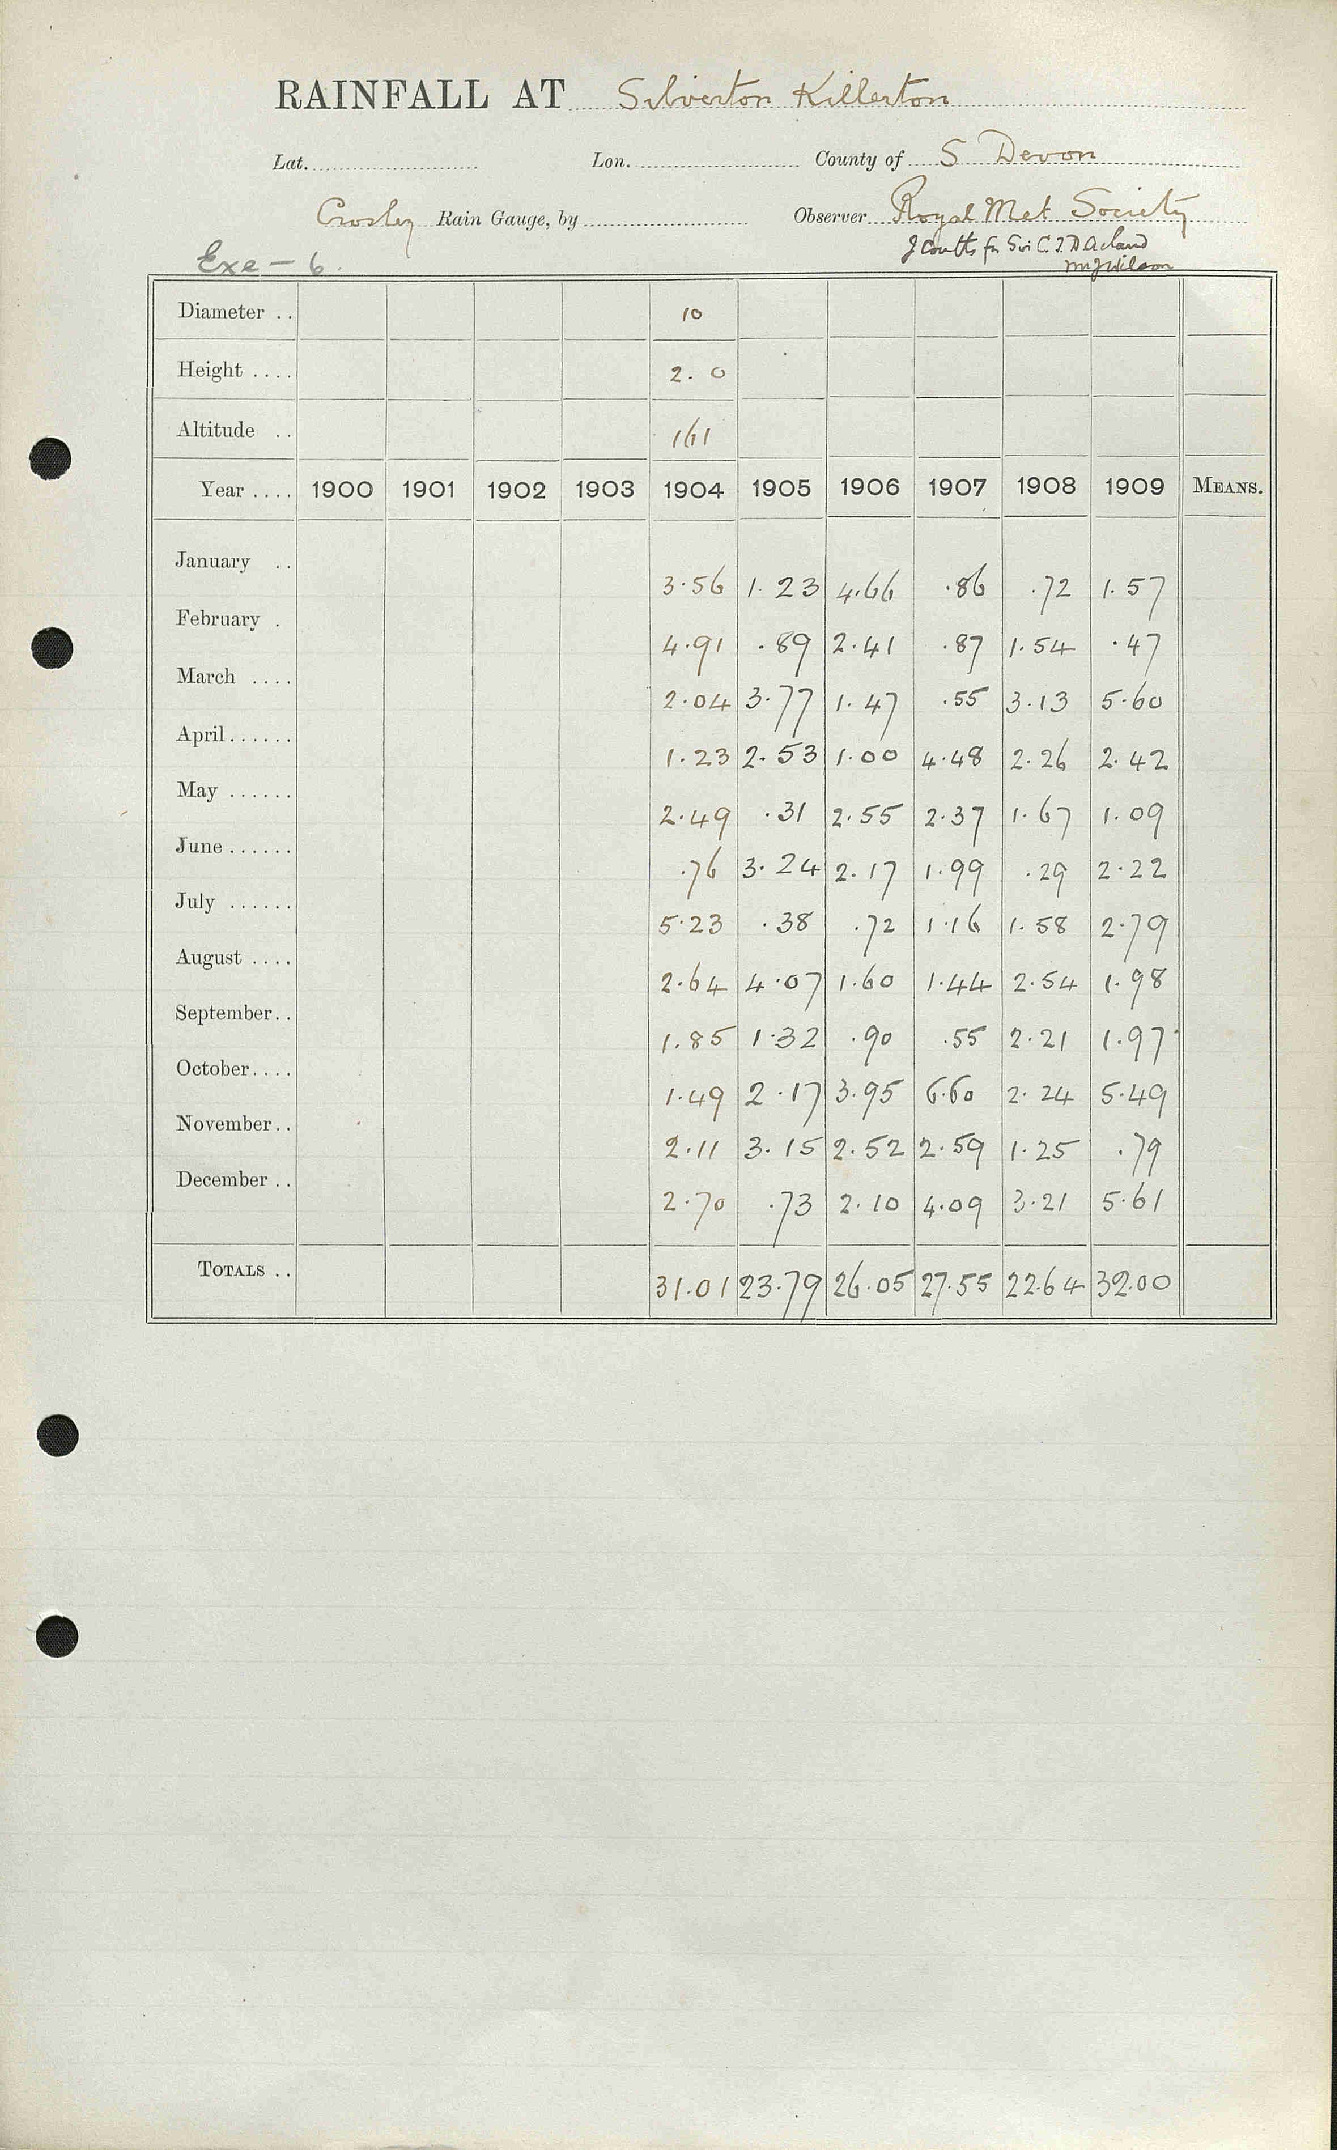 RAINFALL AT Silverton Killerton
Lat. Lon. County of S Devon
Crosley Rain Gauge, by Observer Royal Met Society
J Coutts for Sir C T D Acland
Exe - 6. Mr J Wilson
Diameter .. 10
Height .... 2. 0
Altitude .. 161
Year .... 1900 1901 1902 1903 1904 1905 1906 1907 1908 1909 MEANS.
January .. 3.56 1.23 4.66 .86 .72 1.57
February . 4.91 .89 2.41 .87 1.54 .47
March .... 2.04 3.77 1.47 .55 3.13 5.60
April...... 1.23 2.53 1.00 4.48 2.26 2.42
May ...... 2.49 .31 2.55 2.37 1.67 1.09
June...... .76 3.24 2.17 1.99 .29 2.22
July ...... 5.23 .38 .72 1.16 1.58 2.79
August .... 2.64 4.07 1.60 1.44 2.54 1.98
September.. 1.85 1.32 .90 .55 2.21 1.97
October.... 1.49 2.17 3.95 6.60 2.24 5.49
November.. 2.11 3.15 2.52 2.59 1.25 .79
December .. 2.70 .73 2.10 4.09 3.21 5.61
TOTALS .. 31.01 23.79 26.05 27.55 22.64 32.00